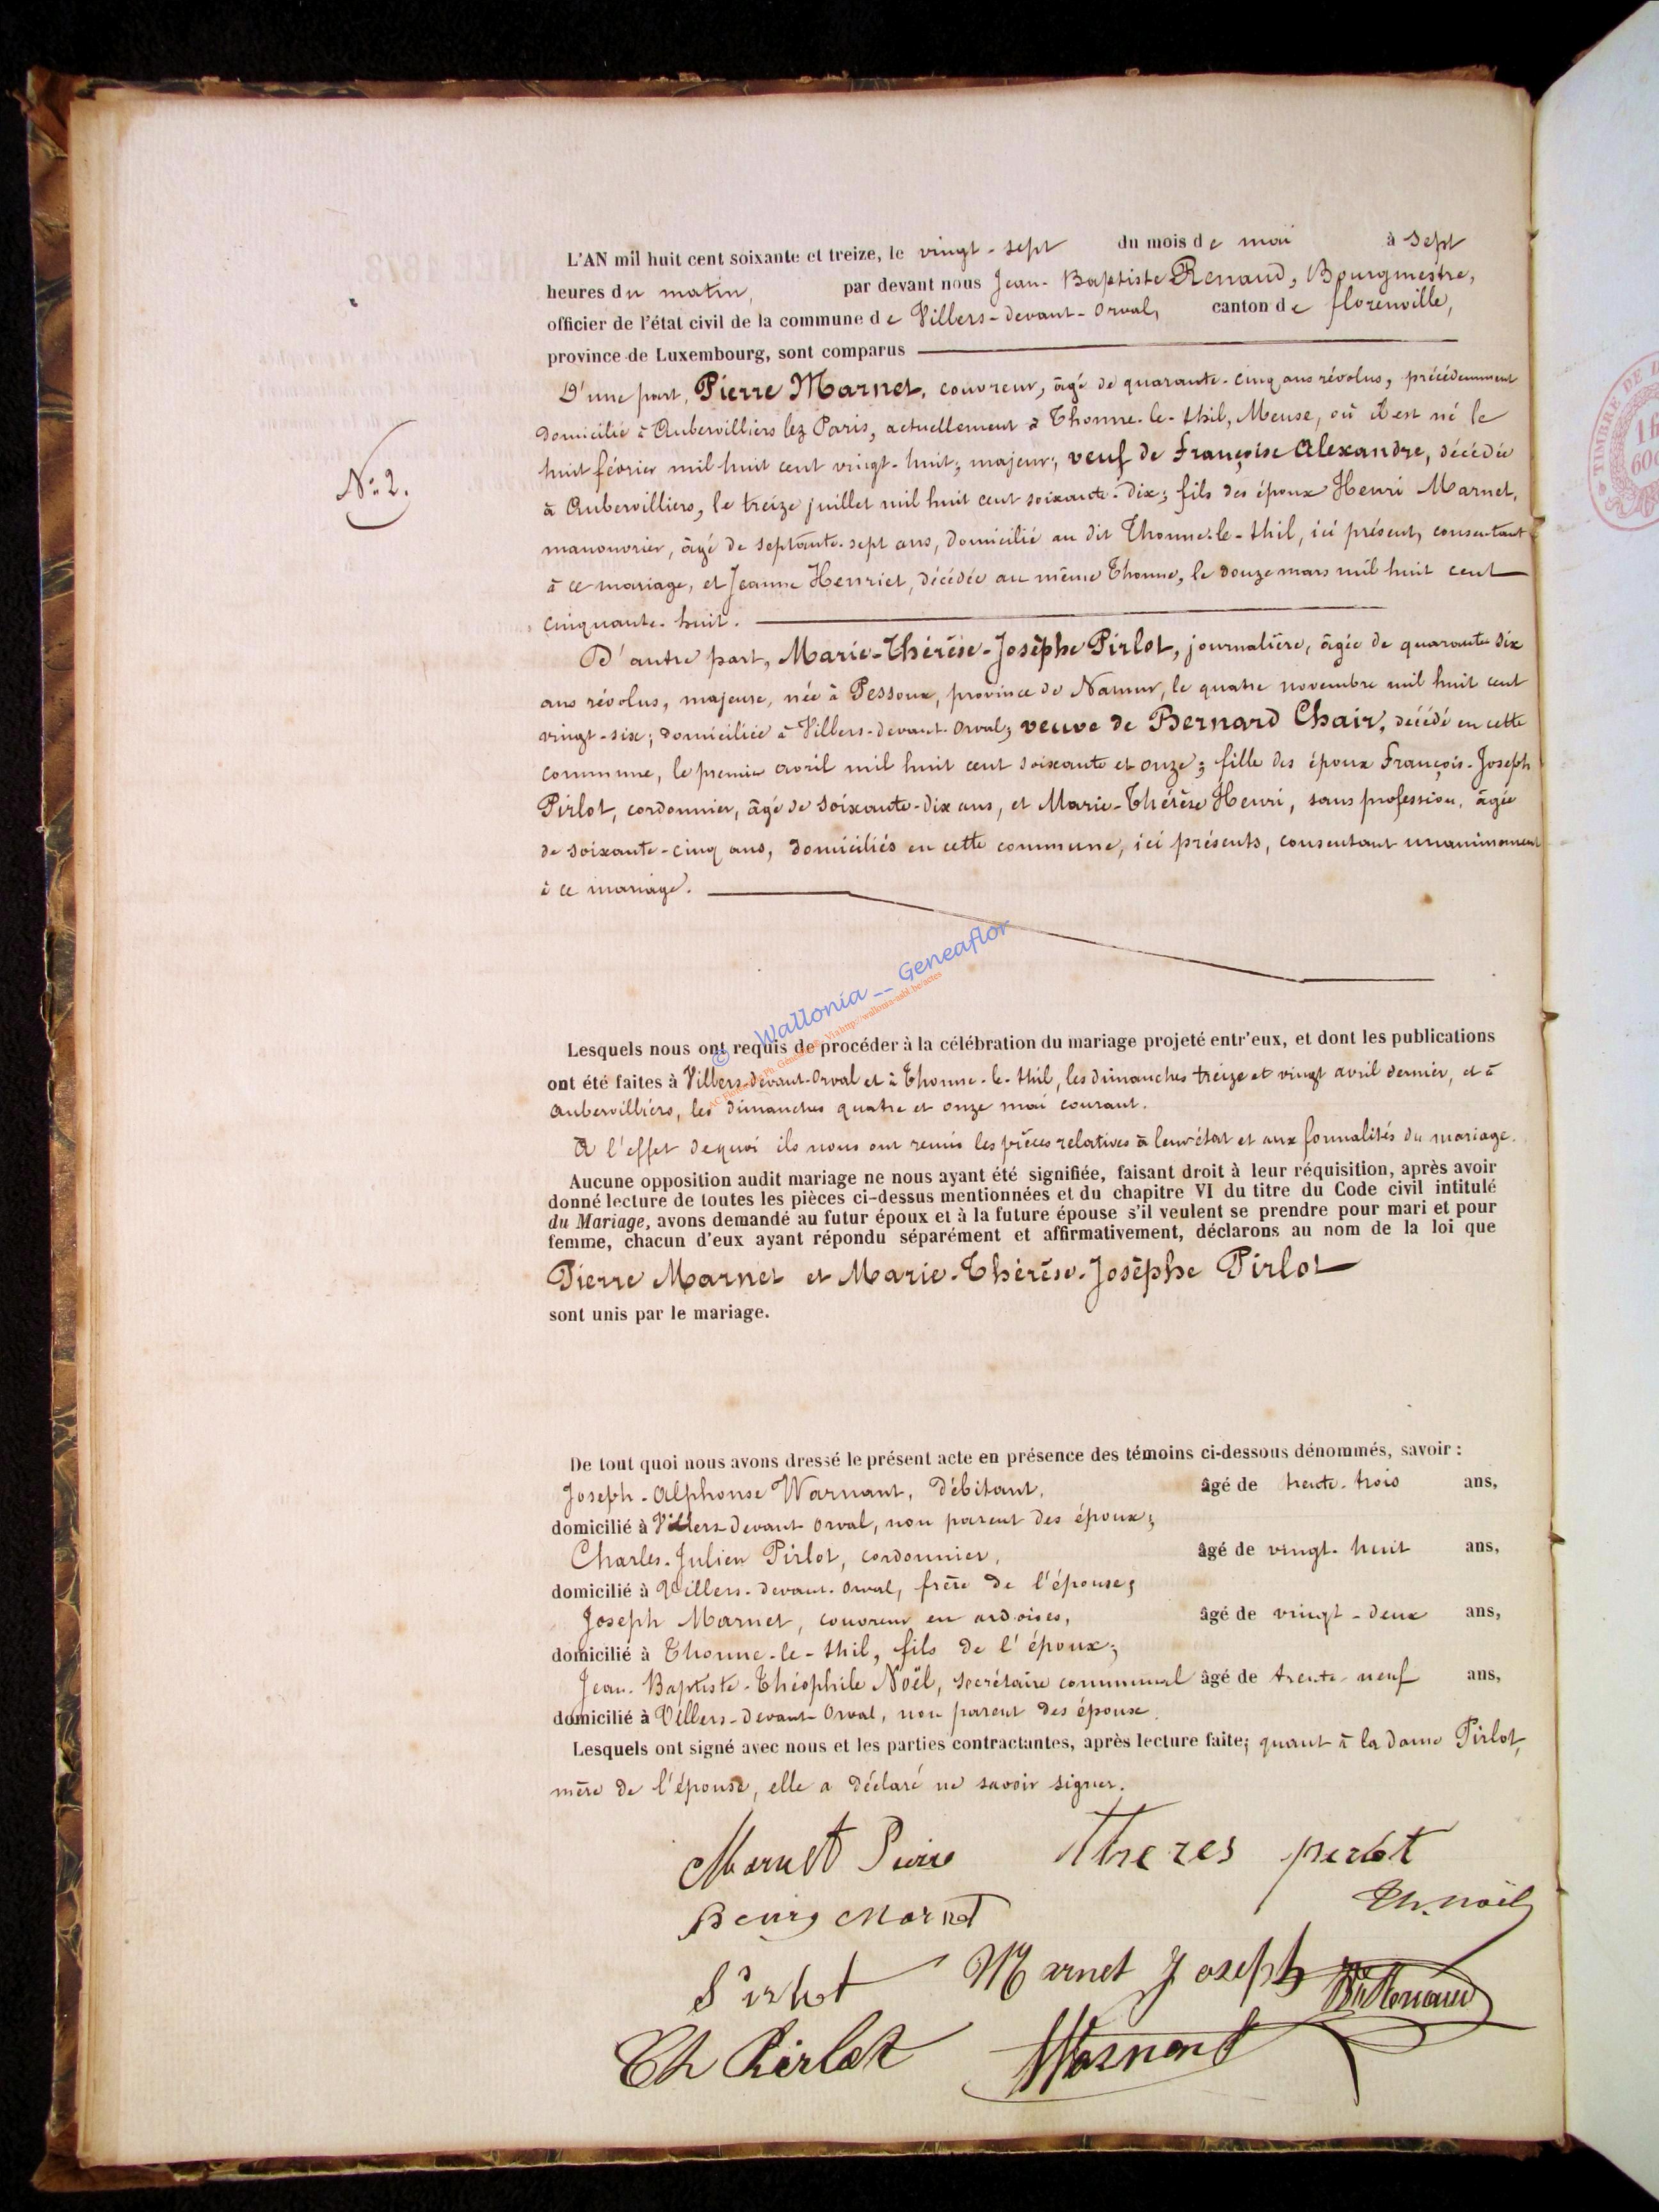 L'AN mil huit cent soixante et treize, le vingt-sept du mois de mai à sept
heures du matin, par devant nous Jean-Baptiste Renaud, Bourgmestre,
officier de l'état civil de la commune de Villers-devant-Orval, canton de florenville,
province de Luxembourg, sont comparus
D'une part, Pierre Marnet, couvreur, âgé de quarante-cinq ans révolus, précédemment
domicilié à Aubervilliers lez Paris, actuellement à Thonne-le-thil, Meuse, où il est né le
huit février mil huit cent vingt-huit; majeur; veuf de Françoise Alexandre, décédée
à Aubervilliers, le treize juillet mil huit cent soixante-dix; fils des époux Henri Marnet,
manouvrier, âgé de septante-sept ans, domicilié au dit Thonne-le-thil, ici présent, consentant
à ce mariage, et Jeanne Henriet, décédée au même Thonne, le douze mars mil huit cent
cinquante-huit.
N° 2.
D'autre part, Marie-Thérèse-Josèphe Pirlot, journalière, âgée de quarante six
ans révolus, majeure, née à Pessoux, province de Namur, le quatre novembre mil huit cent
vingt-six; domiciliée à Villers-devant-Orval; veuve de Bernard Chair, décédé en cette
commune, le premier avril mil huit cent soixante et onze; fille des époux François-Joseph
Pirlot, cordonnier, âgé de soixante-dix ans, et Marie-Thérèse Henri, sans profession, âgée
de soixante-cinq ans, domiciliés en cette commune, ici présents, consentant unanimement
à ce mariage.
© Wallonia -- Geneaflor
Lesquels nous ont requis de procéder à la célébration du mariage projeté entr'eux, et dont les publications
ont été faites à Villers-devant-Orval et à Thonne-le-thil, les dimanches treize et vingt avril dernier, et à
Aubervilliers, les dimanches quatre et onze mai courant.
A l'effet de quoi ils nous ont remis les pièces relatives à leur état et aux formalités du mariage.
Aucune opposition audit mariage ne nous ayant été signifiée, faisant droit à leur réquisition, après avoir
donné lecture de toutes les pièces ci-dessus mentionnées et du chapitre VI du titre du Code civil intitulé
du Mariage, avons demandé au futur époux et à la future épouse s'il veulent se prendre pour mari et pour
femme, chacun d'eux ayant répondu séparément et affirmativement, déclarons au nom de la loi que
Pierre Marnet et Marie-Thérèse-Josèphe Pirlot
sont unis par le mariage.
De tout quoi nous avons dressé le présent acte en présence des témoins ci-dessous dénommés, savoir :
Joseph-Alphonse Warnant, débitant, âgé de trente-trois ans,
domicilié à Villers-devant-Orval, non parent des époux;
Charles-Julien Pirlot, cordonnier, âgé de vingt-huit ans,
domicilié à Villers-devant-Orval, frère de l'épouse;
Joseph Marnet, couvreur en ardoises, âgé de vingt-deux ans,
domicilié à Thonne-le-thil, fils de l'époux;
Jean-Baptiste-Théophile Noël, secrétaire communal âgé de trente-neuf ans,
domicilié à Villers-devant-Orval, non parent des époux.
Lesquels ont signé avec nous et les parties contractantes, après lecture faite; quant à la dame Pirlot,
mère de l'épouse, elle a déclaré ne savoir signer.
Marnet Pierre Threres perlot
Marnet Th. Noël
Pirlot Marnet Joseph
Ch Pirlot
TIMBRE DE